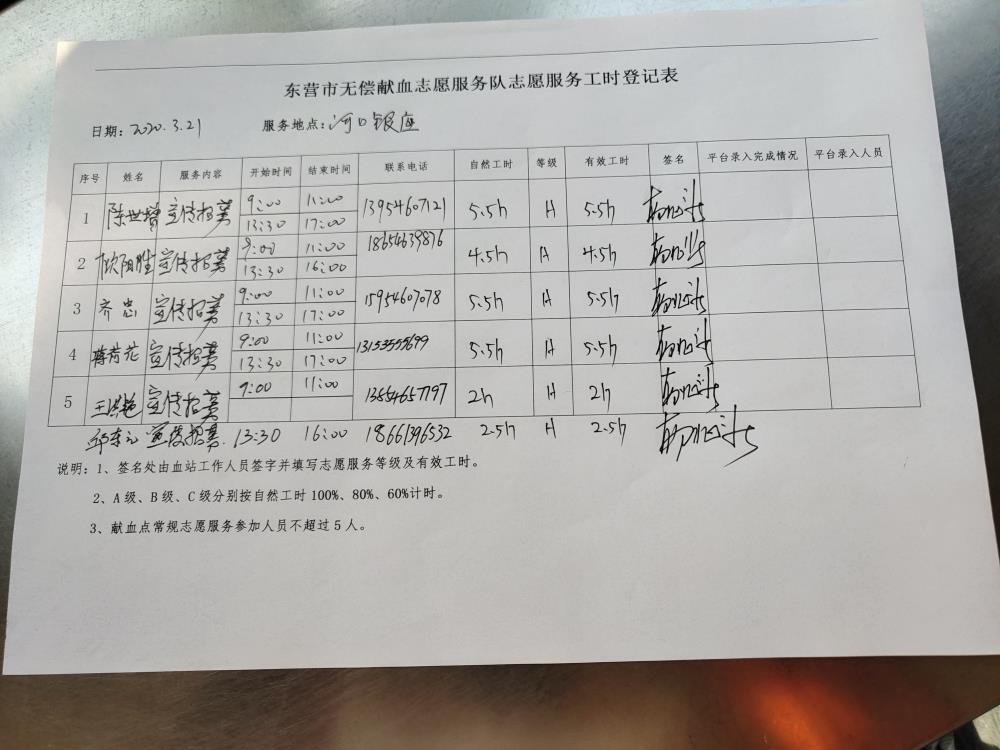 东营市无偿献血志愿服务队志愿服务工时登记表
日期：2020.3.21 服务地点：河口银座
序号 姓名 服务内容 开始时间 结束时间 联系电话 自然工时 等级 有效工时 签名 平台录入完成情况 平台录入人员
1 陈世增 宣传招募 9:00 11:00 13954607121 5.5h A 5.5h
13:30 17:00
2 欧阳胜 宣传招募 9:00 11:00 18654639876 4.5h A 4.5h
13:30 16:00
3 齐忠 宣传招募 9:00 11:00 15954607078 5.5h A 5.5h
13:30 17:00
4 蒋荷花 宣传招募 9:00 11:00 13153555699 5.5h A 5.5h
13:30 17:00
5 王洪艳 宣传招募 9:00 11:00 13854657797 2h A 2h
宣传招募 13:30 16:00 18661396532 2.5h A 2.5h
说明：1、签名处由血站工作人员签字并填写志愿服务等级及有效工时。
2、A级、B级、C级分别按自然工时100%、80%、60%计时。
3、献血点常规志愿服务参加人员不超过5人。